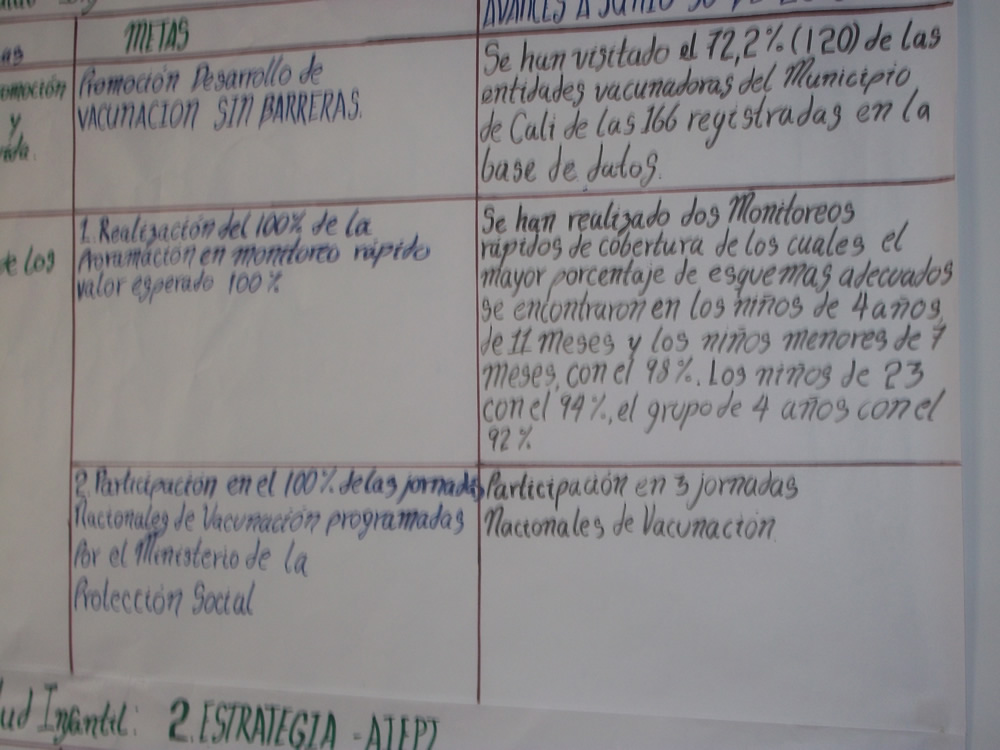 METAS
AVANCES A JUNIO 30
as
omoción
y
vida.
Promoción Desarrollo de
VACUNACION SIN BARRERAS.
Se han visitado el 72,2% (120) de las
entidades vacunadoras del Municipio
de Cali de las 166 registradas en la
base de datos.
de los
1. Realización del 100% de la
Proramación en monitoreo rápido
valor esperado 100%
Se han realizado dos Monitoreos
rápidos de cobertura de los cuales el
mayor porcentaje de esquemas adecuados
se encontraron en los niños de 4 años,
de 11 meses y los niños menores de 7
meses, con el 98%. Los niños de 23
con el 94%, el grupo de 4 años con el
92%
2. Participación en el 100% de las jornadas
Nacionales de Vacunación programadas
Por el Ministerio de la
Protección Social
Participación en 3 jornadas
Nacionales de Vacunación
lud Infantil: 2. ESTRATEGIA - AIEPI